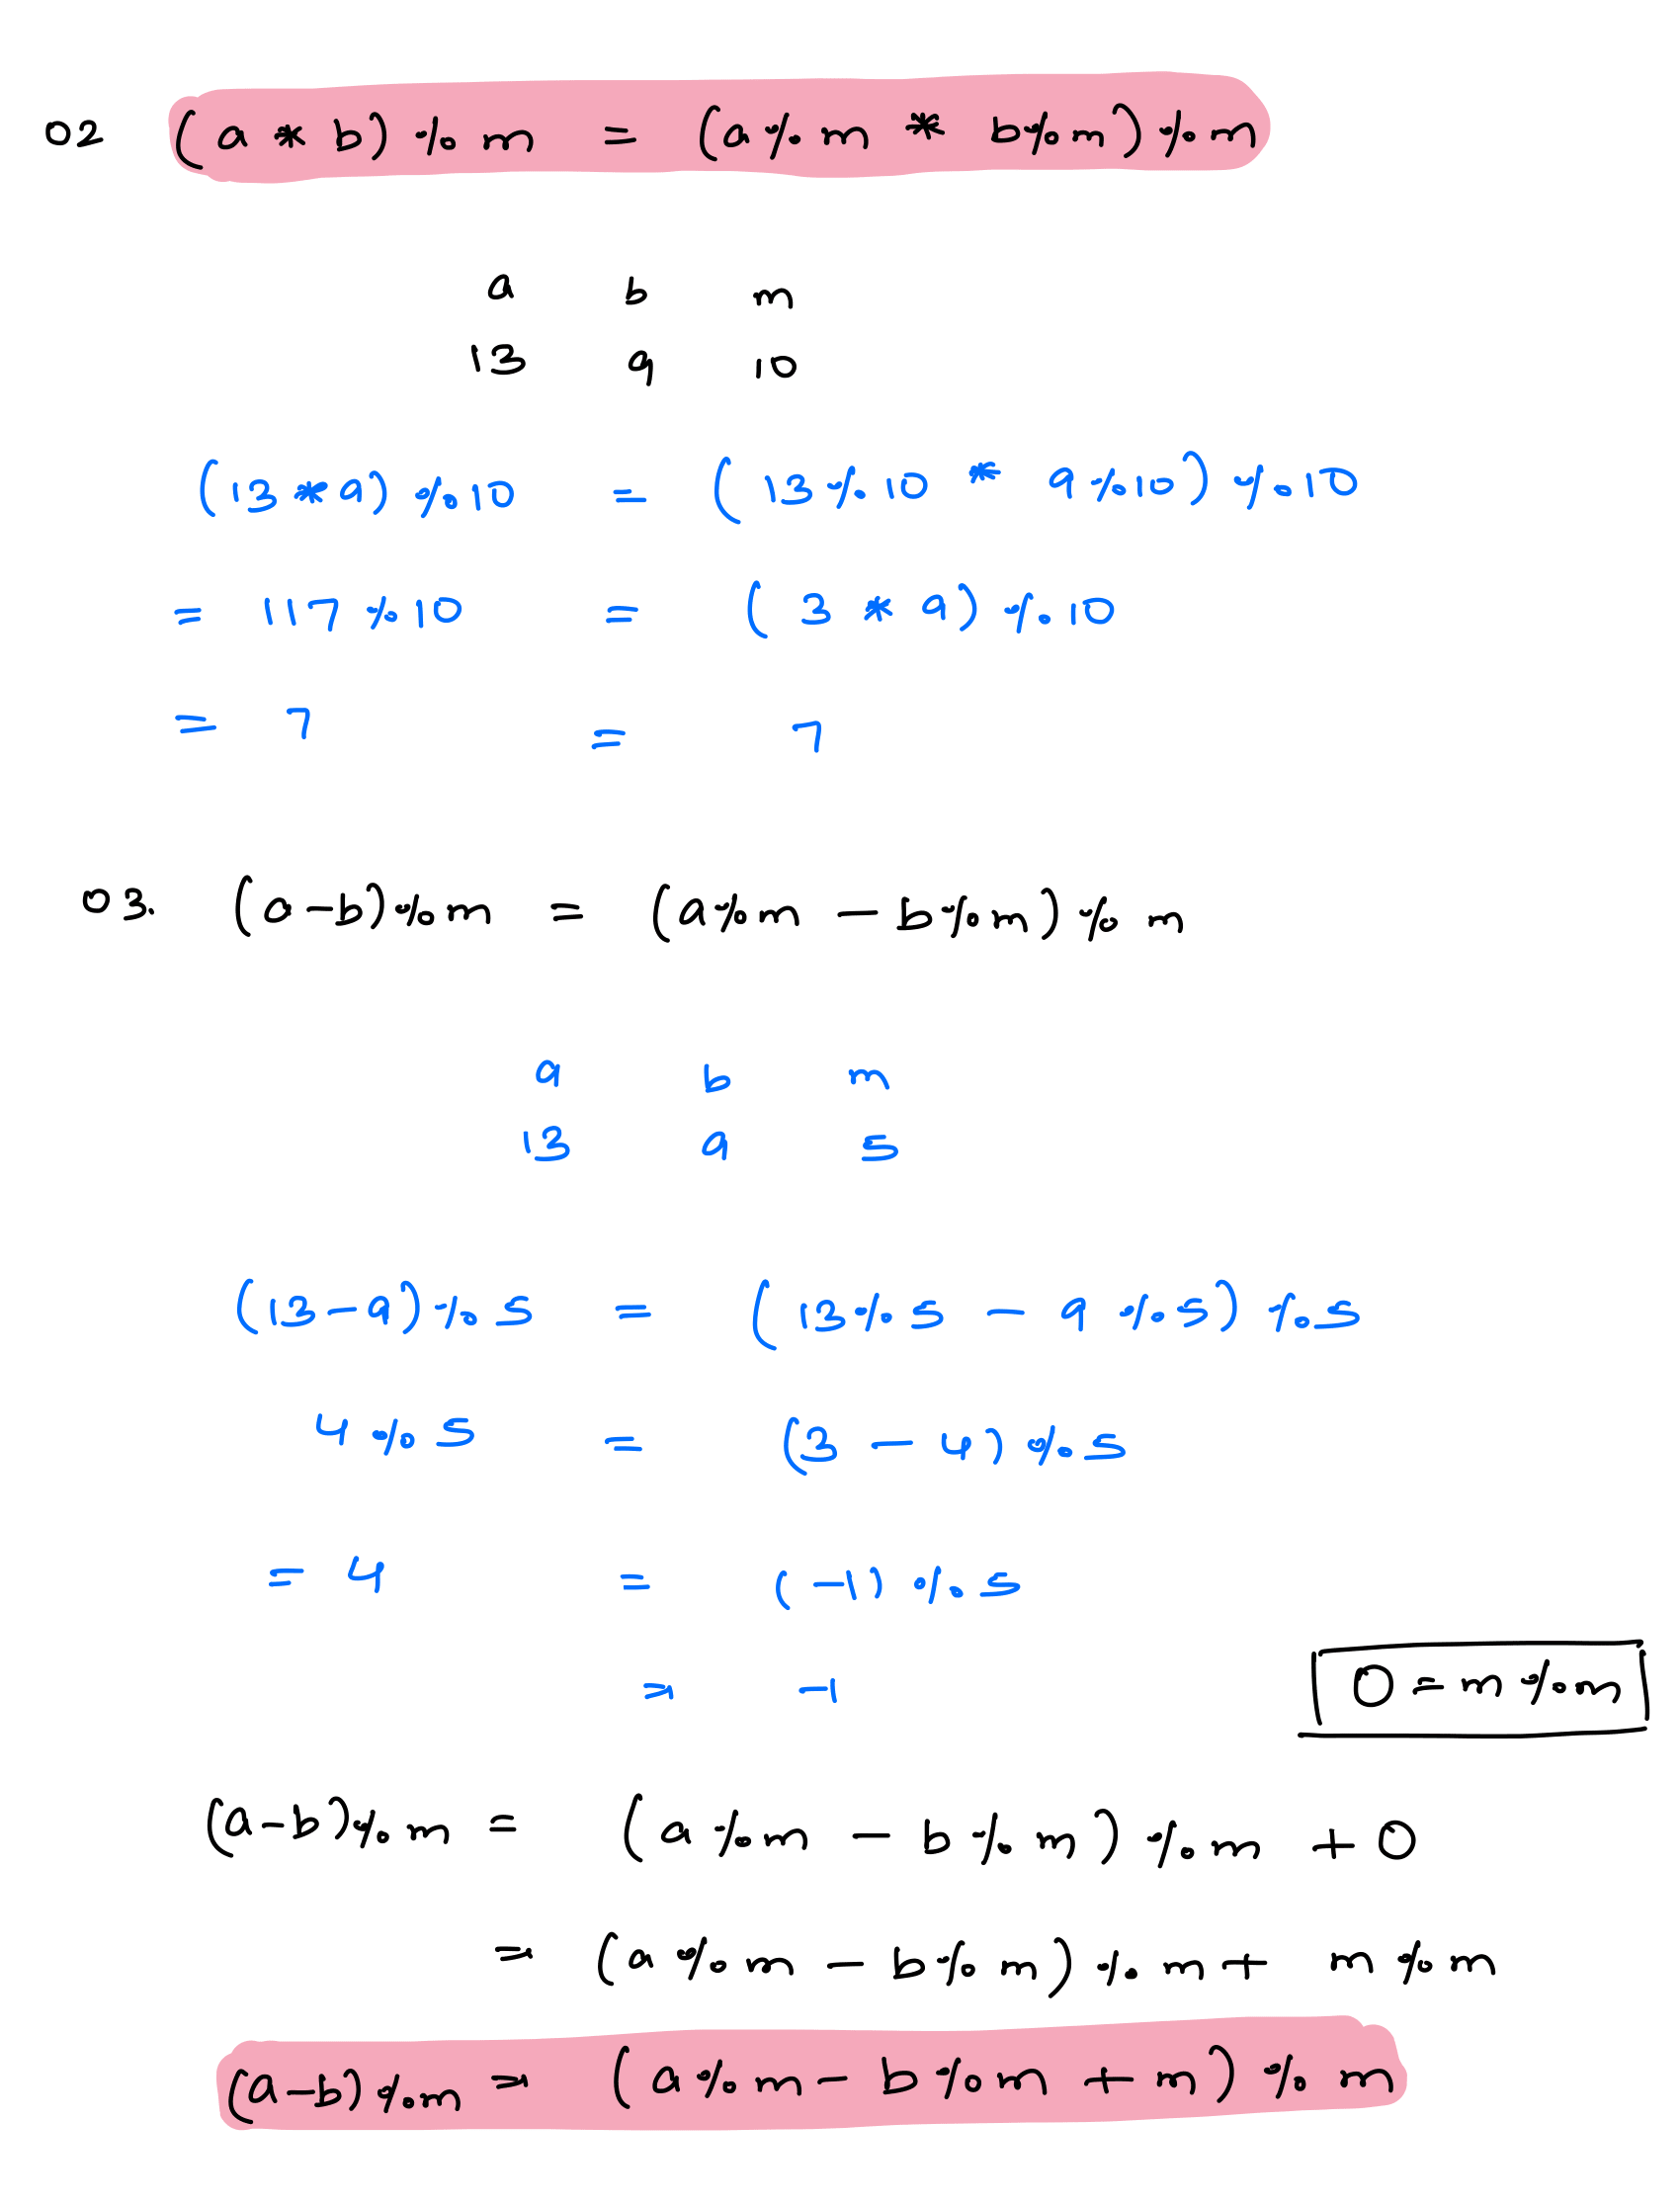 02 (a * b) % m = (a % m * b % m) % m
a b m
13 9 10
(13 * 9) % 10 = (13 % 10 * 9 % 10) % 10
= 117 % 10 = (3 * 9) % 10
= 7 = 7
03. (a-b) % m = (a % m - b % m) % m
a b m
13 9 5
(13-9) % 5 = (13 % 5 - 9 % 5) % 5
4 % 5 = (3 - 4) % 5
= 4 = (-1) % 5
= -1
0 = m % m
(a-b) % m = (a % m - b % m) % m + 0
= (a % m - b % m) % m + m % m
(a-b) % m = (a % m - b % m + m) % m